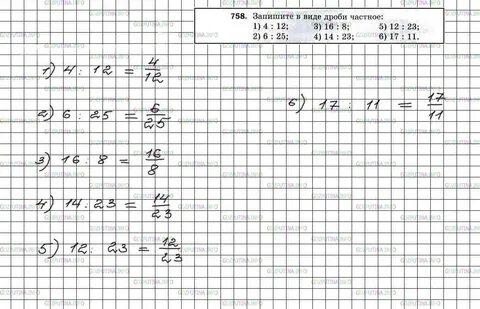 758. Запишите в виде дроби частное:
1) 4 : 12; 3) 16 : 8; 5) 12 : 23;
2) 6 : 25; 4) 14 : 23; 6) 17 : 11.
1) 4 : 12 = 4/12
2) 6 : 25 = 6/25
3) 16 : 8 = 16/8
4) 14 : 23 = 14/23
5) 12 : 23 = 12/23
6) 17 : 11 = 17/11